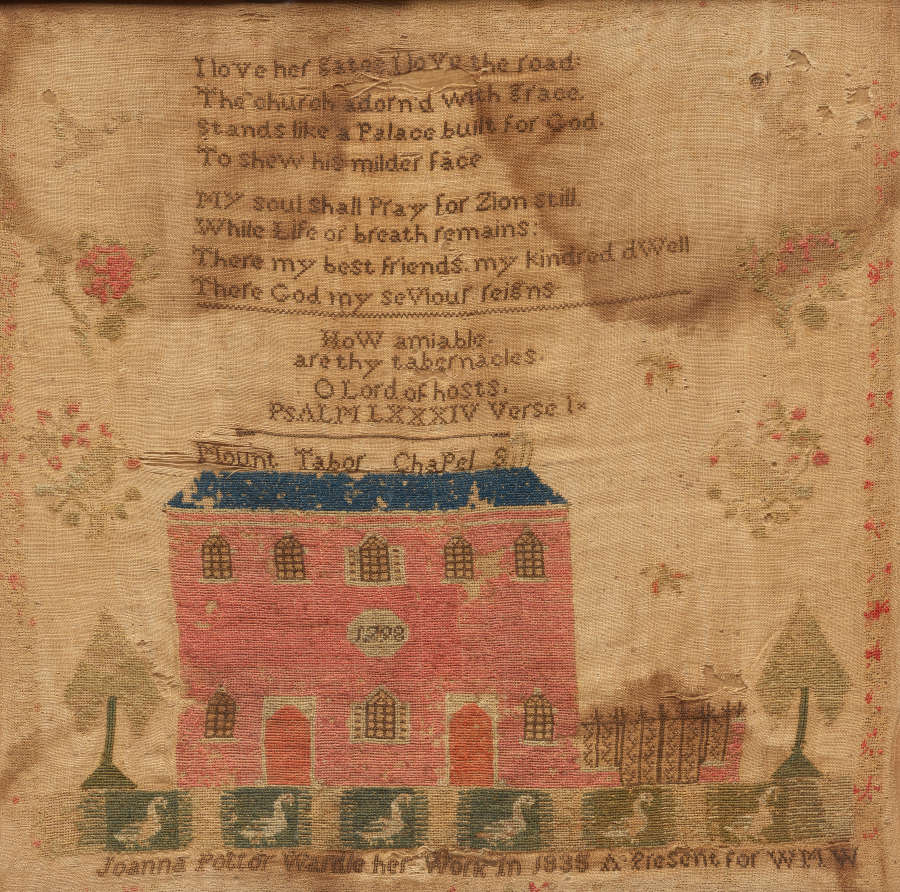 I love her gates I love the road:
The church adorn'd with grace.
Stands like a Palace built for God.
To shew his milder face
My soul shall Pray for Zion still.
While Life or breath remains:
There my best friends. my kindred dwell
There God my seViour reigns
HoW amiable.
are thy tabernacles.
O Lord of hosts.
PsALM LXXXIV Verse 1
Mount Tabor ChaPel S
1798
Joanna Potter Wardle her Work in 1835 A Present for W M W